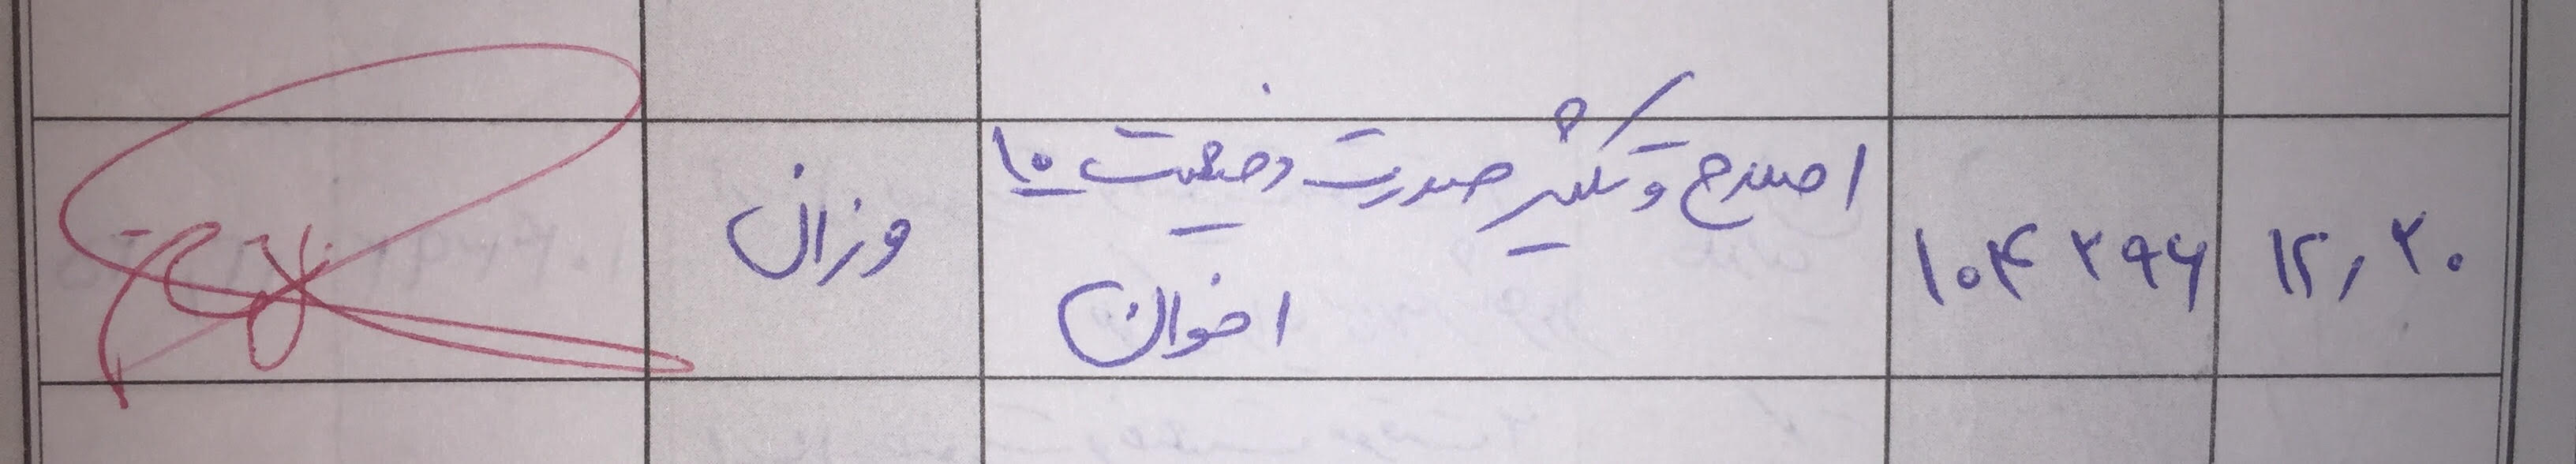 ۱۲٫۲۰
۱۰۴۲۹۶
اصلاح و تکثیر صورت وضعیت ۱۰
اخوان
وزان